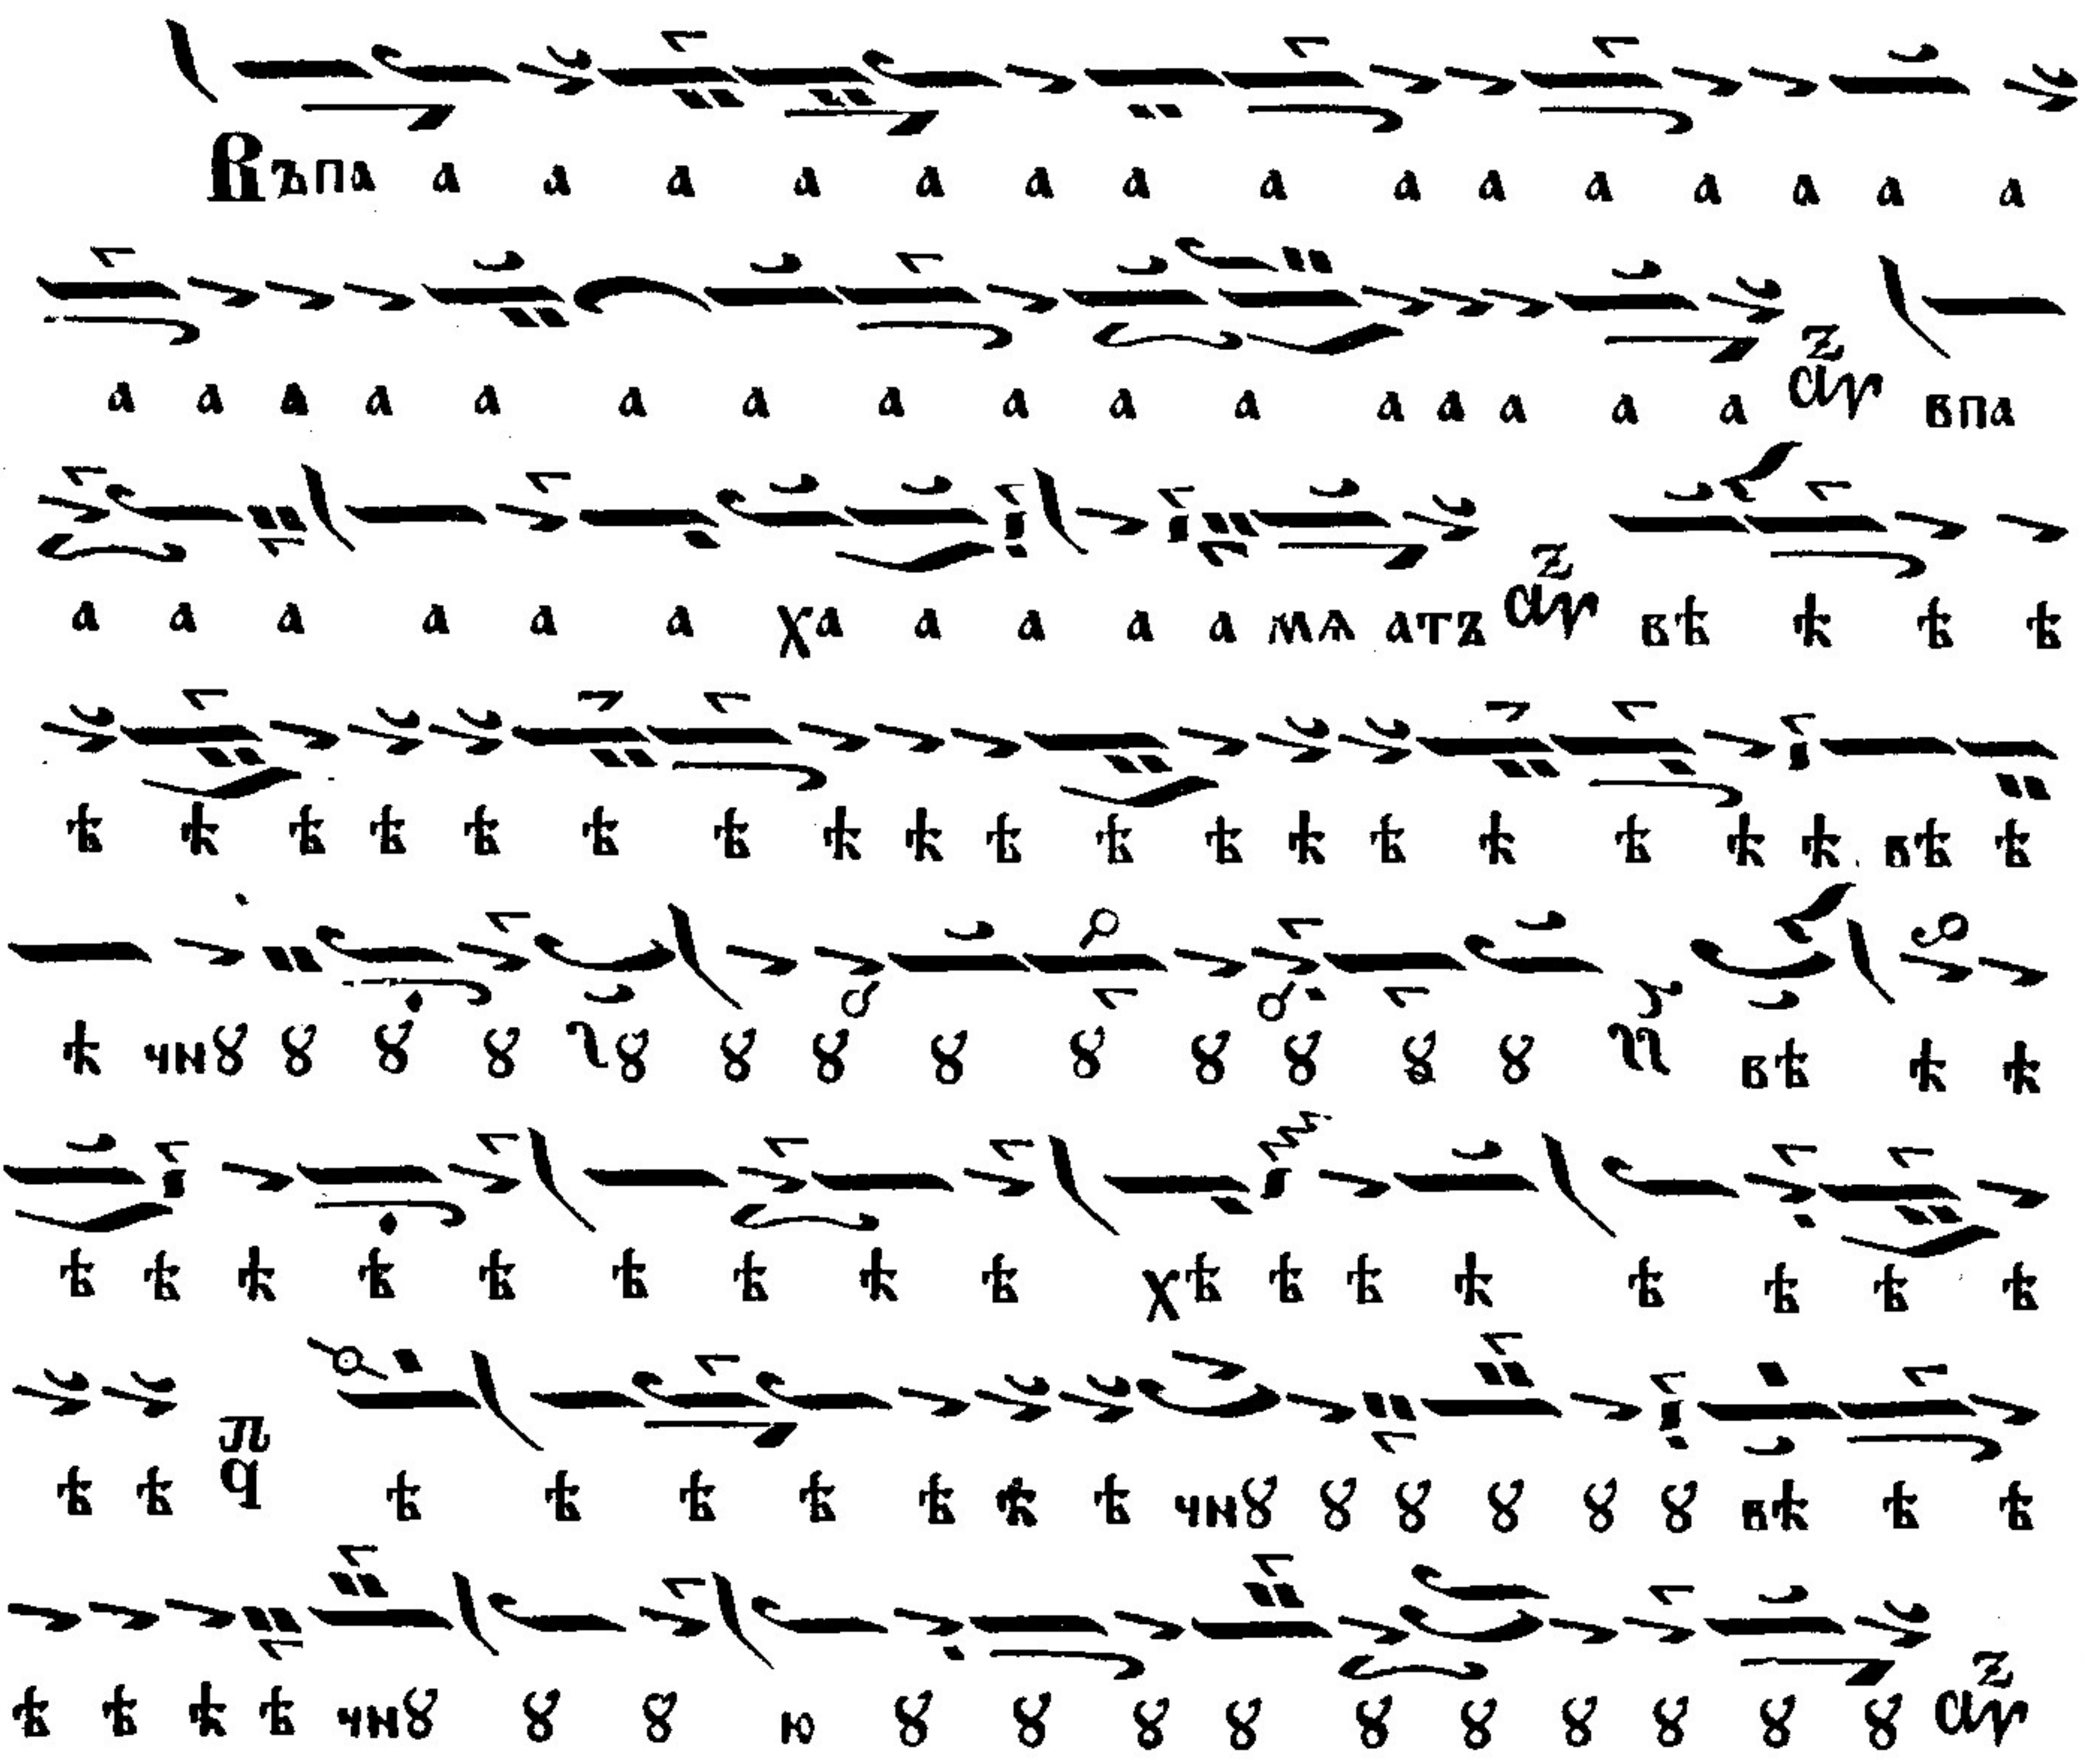 Въпа а а а а а а а а а а а а а а а
а а а а а а а а а а а а а а а а впа
а а а а а а ха а а а а мѧ атъ вѣ ѣ ѣ ѣ
ѣ ѣ ѣ ѣ ѣ ѣ ѣ ѣ ѣ ѣ ѣ ѣ ѣ ѣ ѣ ѣ ѣ ѣ вѣ ѣ
ѣ чнꙋ ꙋ ꙋ ꙋ ꙋ ꙋ ꙋ ꙋ ꙋ ꙋ ꙋ ꙋ ꙋ вѣ ѣ ѣ
ѣ ѣ ѣ ѣ ѣ ѣ ѣ ѣ ѣ хѣ ѣ ѣ ѣ ѣ ѣ ѣ ѣ
ѣ ѣ ѣ ѣ ѣ ѣ ѣ ѣ ѣ чнꙋ ꙋ ꙋ ꙋ ꙋ ꙋ вѣ ѣ ѣ
ѣ ѣ ѣ ѣ чнꙋ ꙋ ꙋ ю ꙋ ꙋ ꙋ ꙋ ꙋ ꙋ ꙋ ꙋ ꙋ ꙋ